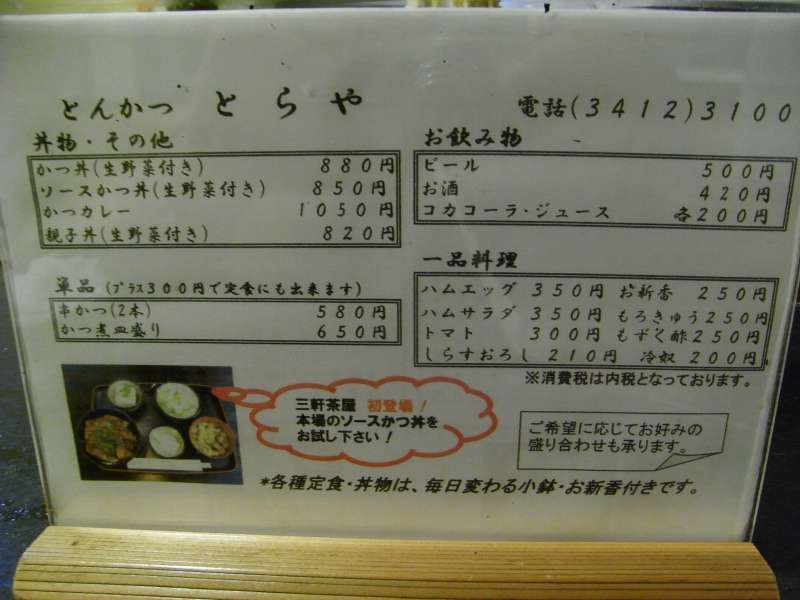 とんかつ とらや 電話(3412)3100
丼物・その他
かつ丼(生野菜付き) 880円
ソースかつ丼(生野菜付き) 850円
かつカレー 1050円
親子丼(生野菜付き) 820円
単品 (プラス300円で定食にも出来ます)
串かつ(2本) 580円
かつ煮皿盛り 650円
お飲み物
ビール 500円
お酒 420円
コカコーラ・ジュース 各200円
一品料理
ハムエッグ 350円 お新香 250円
ハムサラダ 350円 もろきゅう250円
トマト 300円 もずく酢250円
しらすおろし 210円 冷奴 200円
※消費税は内税となっております。
三軒茶屋 初登場!
本場のソースかつ丼を
お試し下さい!
ご希望に応じてお好みの
盛り合わせも承ります。
*各種定食・丼物は、毎日変わる小鉢・お新香付きです。